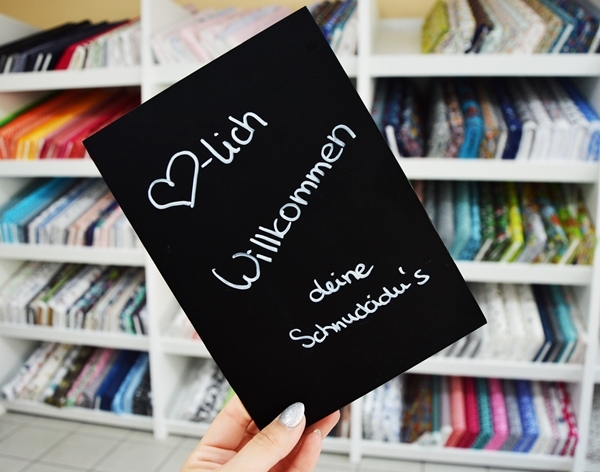 ♡-lich
Willkommen
deine
Schnudödu's